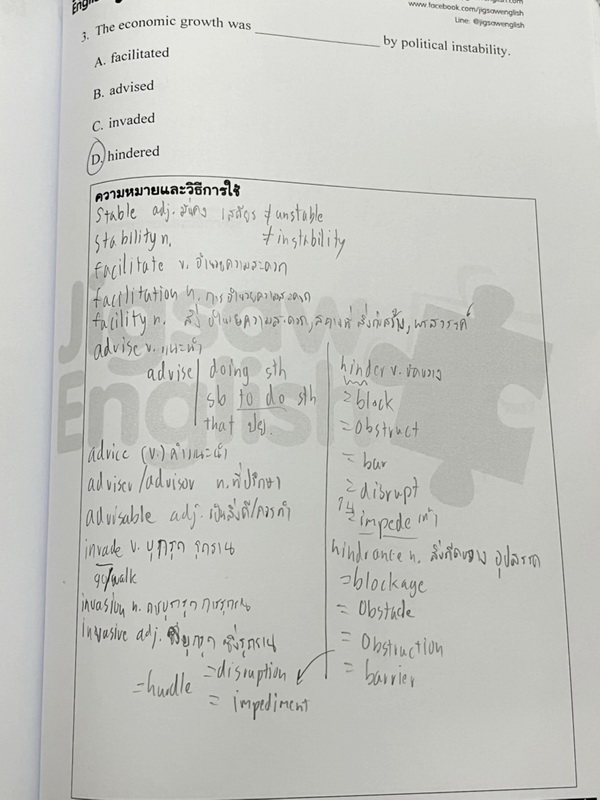 www.facebook.com/jigsawenglish
Line: @jigsawenglish
3. The economic growth was ____________ by political instability.
A. facilitated
B. advised
C. invaded
D. hindered
ความหมายและวิธีการใช้
Stable adj. มั่นคง เสถียร ≠ unstable
stability n. ≠ instability
facilitate v. อำนวยความสะดวก
facilitation n. การอำนวยความสะดวก
facility n. สิ่งอำนวยความสะดวก, สถานที่ สิ่งก่อสร้าง, พรสวรรค์
advise v. แนะนำ
advise doing sth
sb to do sth
that ปย.
advice (v.) คำแนะนำ
adviser/advisor n. ที่ปรึกษา
advisable adj. เป็นสิ่งดี/ควรทำ
invade v. บุกรุก รุกราน
go/walk
invasion n. การบุกรุก การรุกราน
invasive adj. ซึ่งบุกรุก ซึ่งรุกราน
hinder v. ขัดขวาง
= block
= obstruct
= bar
= disrupt
= impede (เท้า)
hindrance n. สิ่งกีดขวาง อุปสรรค
= blockage
= obstacle
= obstruction
= barrier
= disruption
= hurdle
= impediment
Jigsaw
English